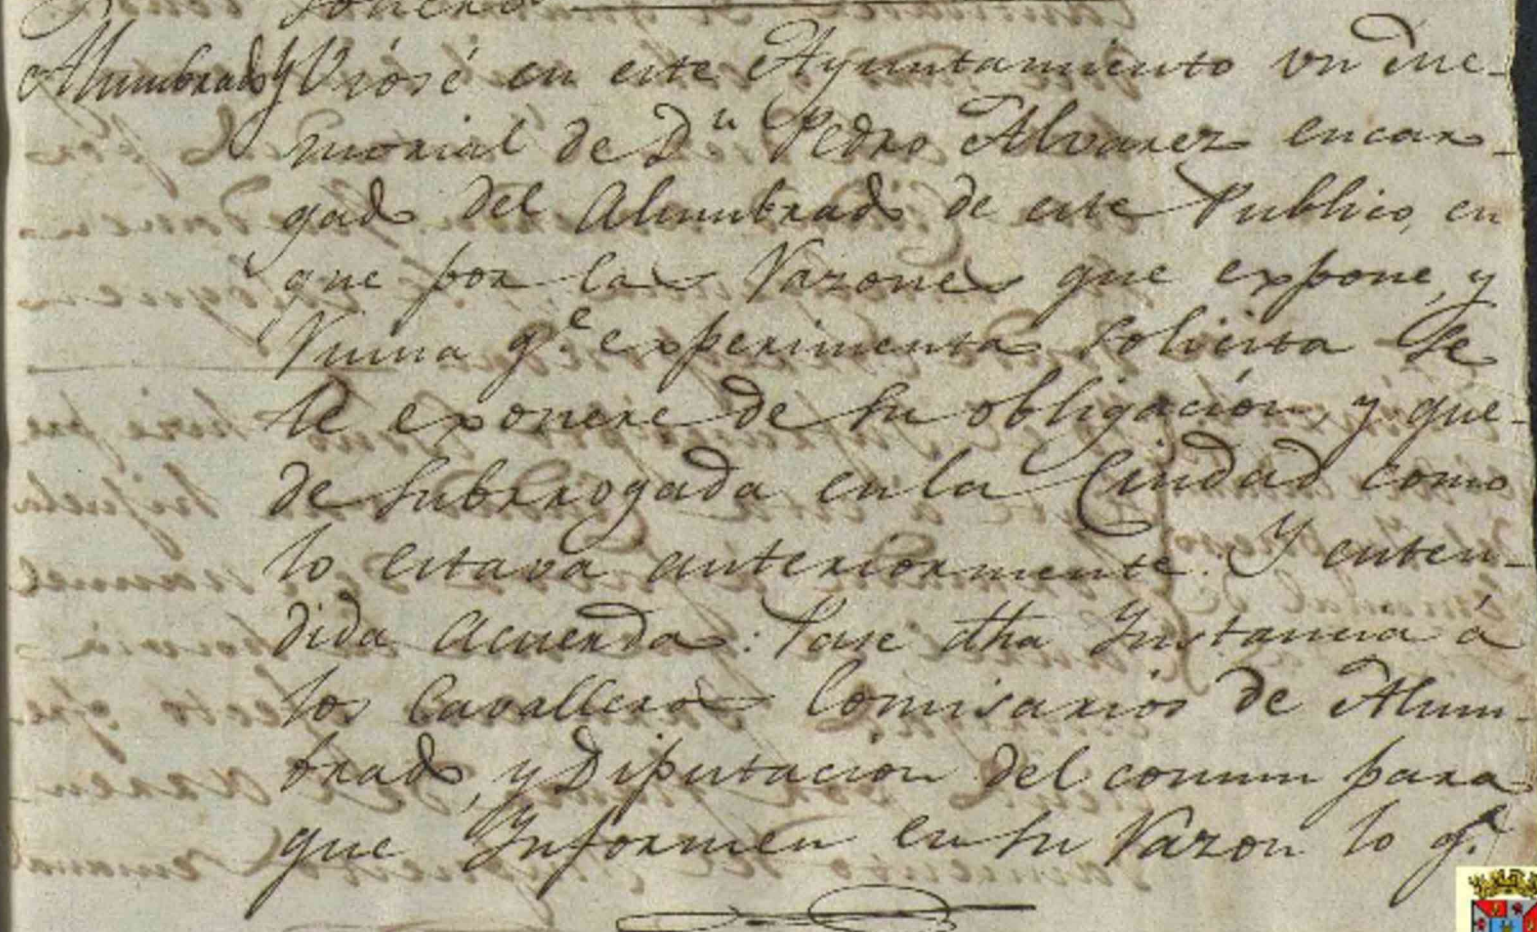 Alumbrado Vióse en este Ayuntamiento un Me-
morial de Dn Pedro Alvarez encar-
gado del Alumbrado de este Publico, en
que por las Razones que expone, y
Ruina qe experimenta solicita se
le exonere de su obligación, y que-
de subrrogada en la Ciudad como
lo estava anteriormente. Y enten-
dida Acuerda: Pase dha Instancia á
los Cavalleros Comisarios de Alum-
brado, y Diputacion del comun para
que Informen en su Razon lo qe